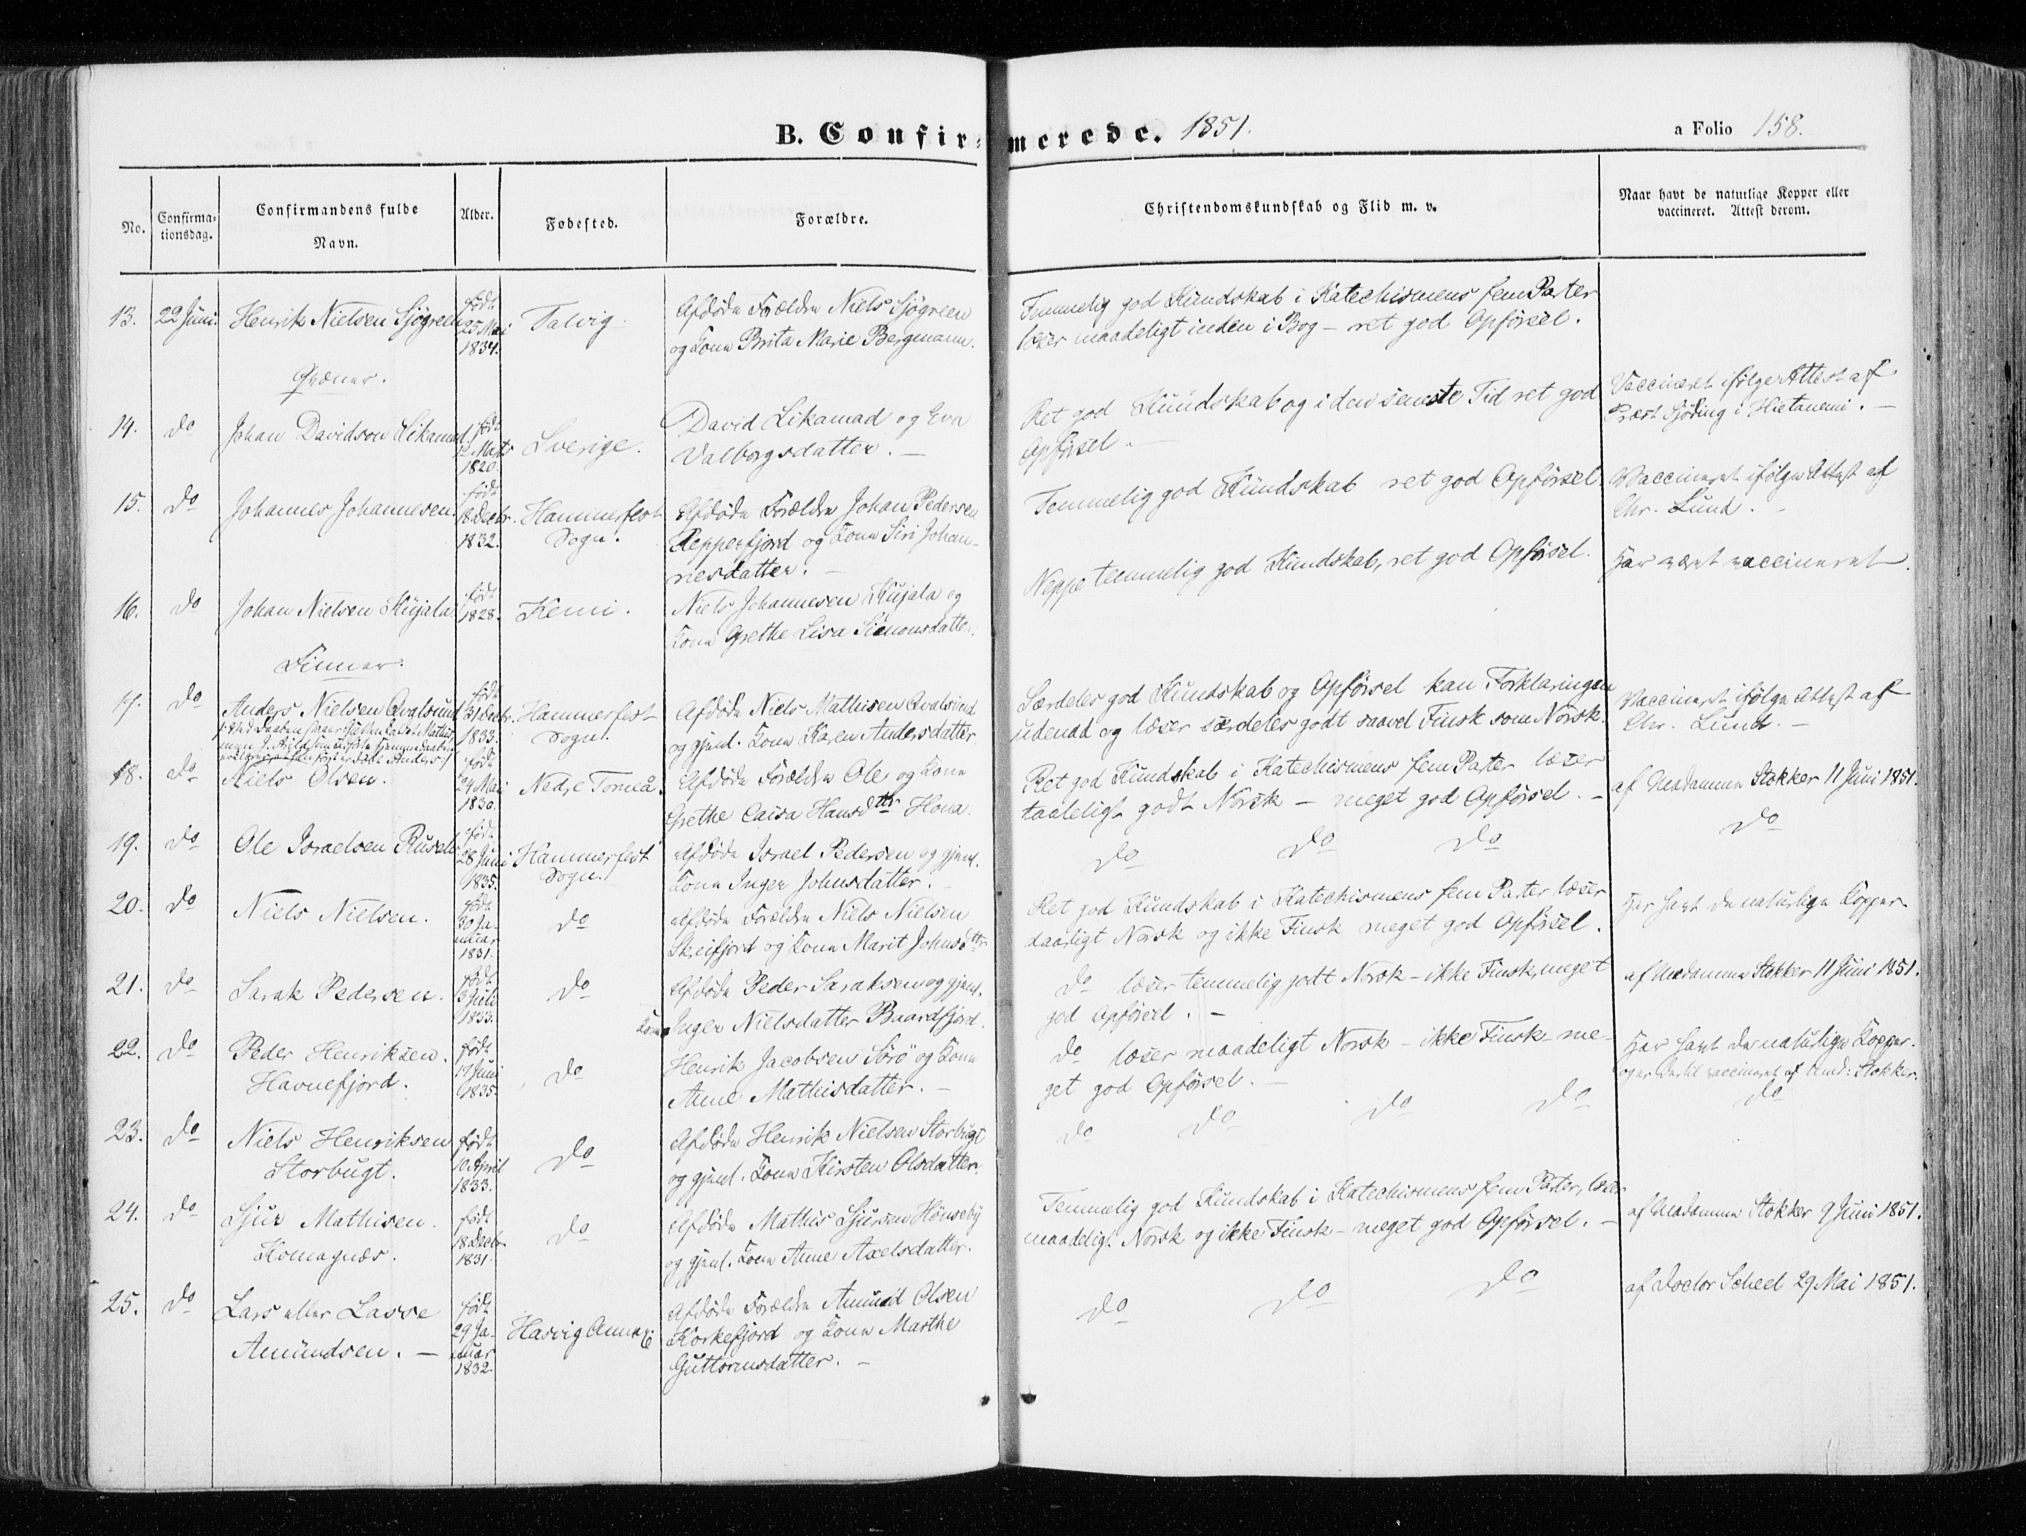 B. Confirmerede. 1851.
a Folio 158.
No.
Confirmationsdag.
Confirmandens fulde Navn.
Alder.
Fødested.
Forældre.
Christendomskundskab og Flid m. v.
Naar havt de naturlige Kopper eller vaccineret. Attest derom.
13. 22 Juni. Henrik Nielsen Sjøgreen født 25 Mai 1834. Talvig
Afdøde Forældre Niels Sjøgreen
og Kone Brita Marie Bergmann.
Temmelig god Kundskab i Katechismens fem Parter
læser maadeligt inden i Bog – ret god Opførsel.
Qvæner.
14. do Johan Davidsen Likamad født 12 Marts 1820. Sverige.
David Likamad og Eva
Valborgsdatter. –
Ret god Kundskab og i den seneste Tid ret god
Opførsel –
Vaccineret ifølge Attest af
Præst Sjöding i Hietanemi. –
15. do Johannes Johannesen. født 18 Decbr. 1832. Hammerfest Sogn.
Afdøde Forældre Johan Pedersen
Repperfjord og Kone Siri Johan-
nesdatter. –
Temmelig god Kundskab ret god Opførsel
Vaccineret ifølge Attest af
Chr. Lund. –
16. do Johan Nielsen Kujala født 1828. Kemi.
Niels Johannesen Kujala og
Kone Grethe Lisa Simonsdatter.
Neppe temmelig god Kundskab, ret god Opførsel.
Har været vaccineret.
Finner.
17. do Anders Nielsen Qvalsund født 31 Decbr. 1833. Hammerfest Sogn.
Afdøde Niels Mathisen Qvalsund
og gjenl. Kone Karen Andersdatter
Særdeles god Kundskab og Opførsel kan Forklaringen
udenad og læser særdeles godt saavel Finsk som Norsk.
Vaccineret ifølge Attest af
Chr. Lund. –
18. do Niels Olsen. født 24 Mai 1830. Nedre Torneå.
Afdøde Forældre Ole og Kone
Grethe Caisa Hansdttr Hona.
Ret god Kundskab i Katechismens fem Parter læser
taaleligt godt Norsk – meget god Opførsel. –
af Madamme Stokker 11 Juni 1851.
19. do Ole Israelsen født 28 Juni 1835. Hammerfest Sogn.
Afdøde Israel Pedersen og gjenl.
Kone Inger Johnsdatter. –
do do do
do
20. do Niels Nielsen. født 30 Januar 1831. do
Afdøde Forældre Niels Nielsen
Skreifjord og Kone Marit Johnsdttr
Ret god Kundskab i Katechismens fem Parter læser
daarligt Norsk og ikke Finsk meget god Opførsel.
Har havt de naturlige Kopper
21. do Sarak Pedersen. født 3 Juli 1833. do
Afdøde Peder Saraksen og gjenl.
Kone Inger Nielsdatter Baardfjord.
do læser temmelig godt Norsk – ikke Finsk, meget
god Opførsel. –
af Madamme Stokker 11 Juni 1851.
22. do Peder Henriksen. Havnefjord. født 17 Juni 1835. do
Henrik Jacobsen Sörö og Kone
Anne Mathisdatter. –
do læser maadeligt Norsk – ikke Finsk – me-
get god Opførsel. –
Har havt de naturlige Kopper.
og er dertil vaccineret af Mad: Stokker.
23. do Niels Henriksen Storbugt. født 10 April 1833. do
Afdøde Henrik Nielsen Storbugt
og gjenl. Kone Kirsten Olsdatter.
do do do do
do
24. do Sjur Mathisen. Komagnæs. født 18 Decbr 1831. do
Afdøde Mathis Sjursen Hönseby
og gjenl. Kone Anne Axelsdatter.
Temmelig god Kundskab i Katechismens fem Parter, læser
maadeligt Norsk og ikke Finsk – meget god Opførsel. –
af Madamme Stokker 9 Juni 1851.
25. do Lars eller Lasse Amundsen. – født 29 Januar 1832. Hasvig Annex
Afdøde Forældre Amund Olsen
Korkefjord og Kone Marthe
Guttormsdatter. –
do do do
af Doctor Scheel 29 Mai 1851.